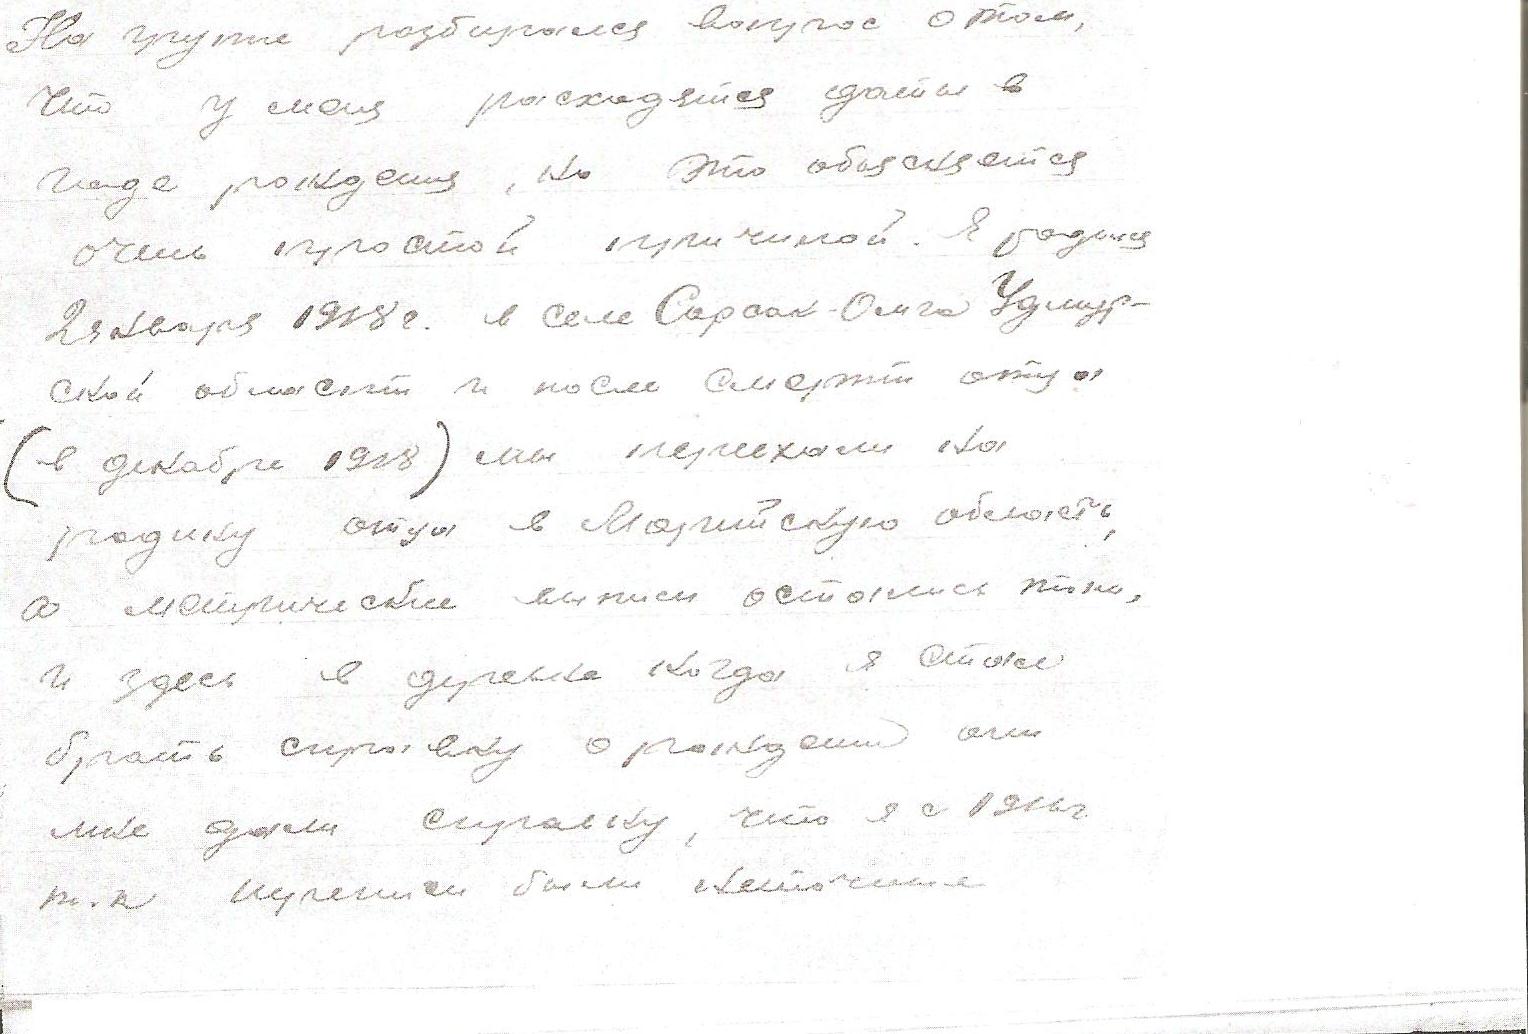 На группе разбирался вопрос о том,
что у меня расходятся даты в
годе рождения, но это объясняется
очень простой причиной. Я родился
2 января 1918 г. в селе Сарсак-Омга Удмур-
ской области и после смерти отца
(в декабре 1918) мы переехали на
родину отца в Марийскую область,
а метрические выписи остались там,
и здесь в деревне когда я стал
брать справку о рождении они
мне дали справку, что я с
т.к переписи были неточные